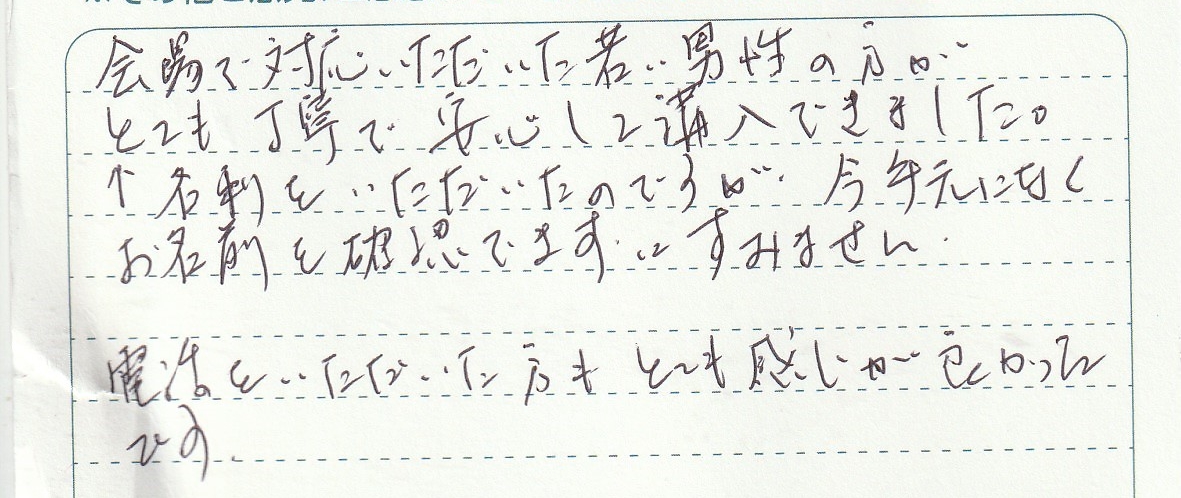 会場で対応いただいた若い男性の方が
とても丁寧で安心して購入できました。
↑名刺をいただいたのですが、今手元になく
お名前を確認できずにすみません.
電話をいただいた方もとても感じが良かった
です.